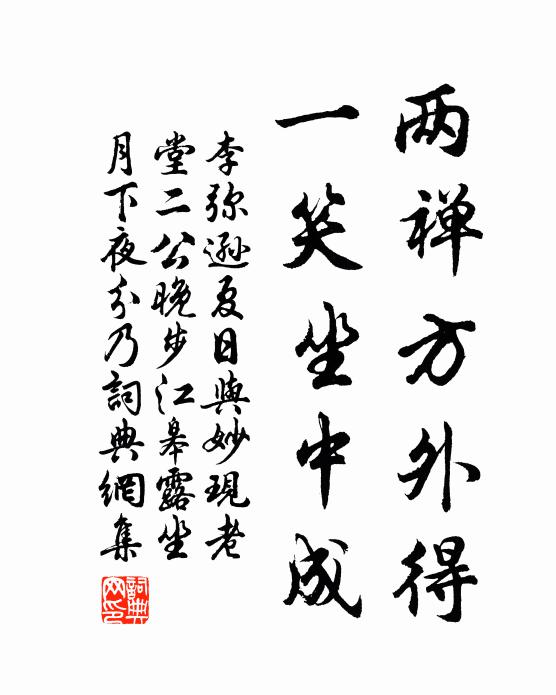 两禅方外得
一笑坐中成
李弥逊夏日與妙現老
堂二公晚步江皋露坐
月下夜分乃詞典網集
詞典
网印